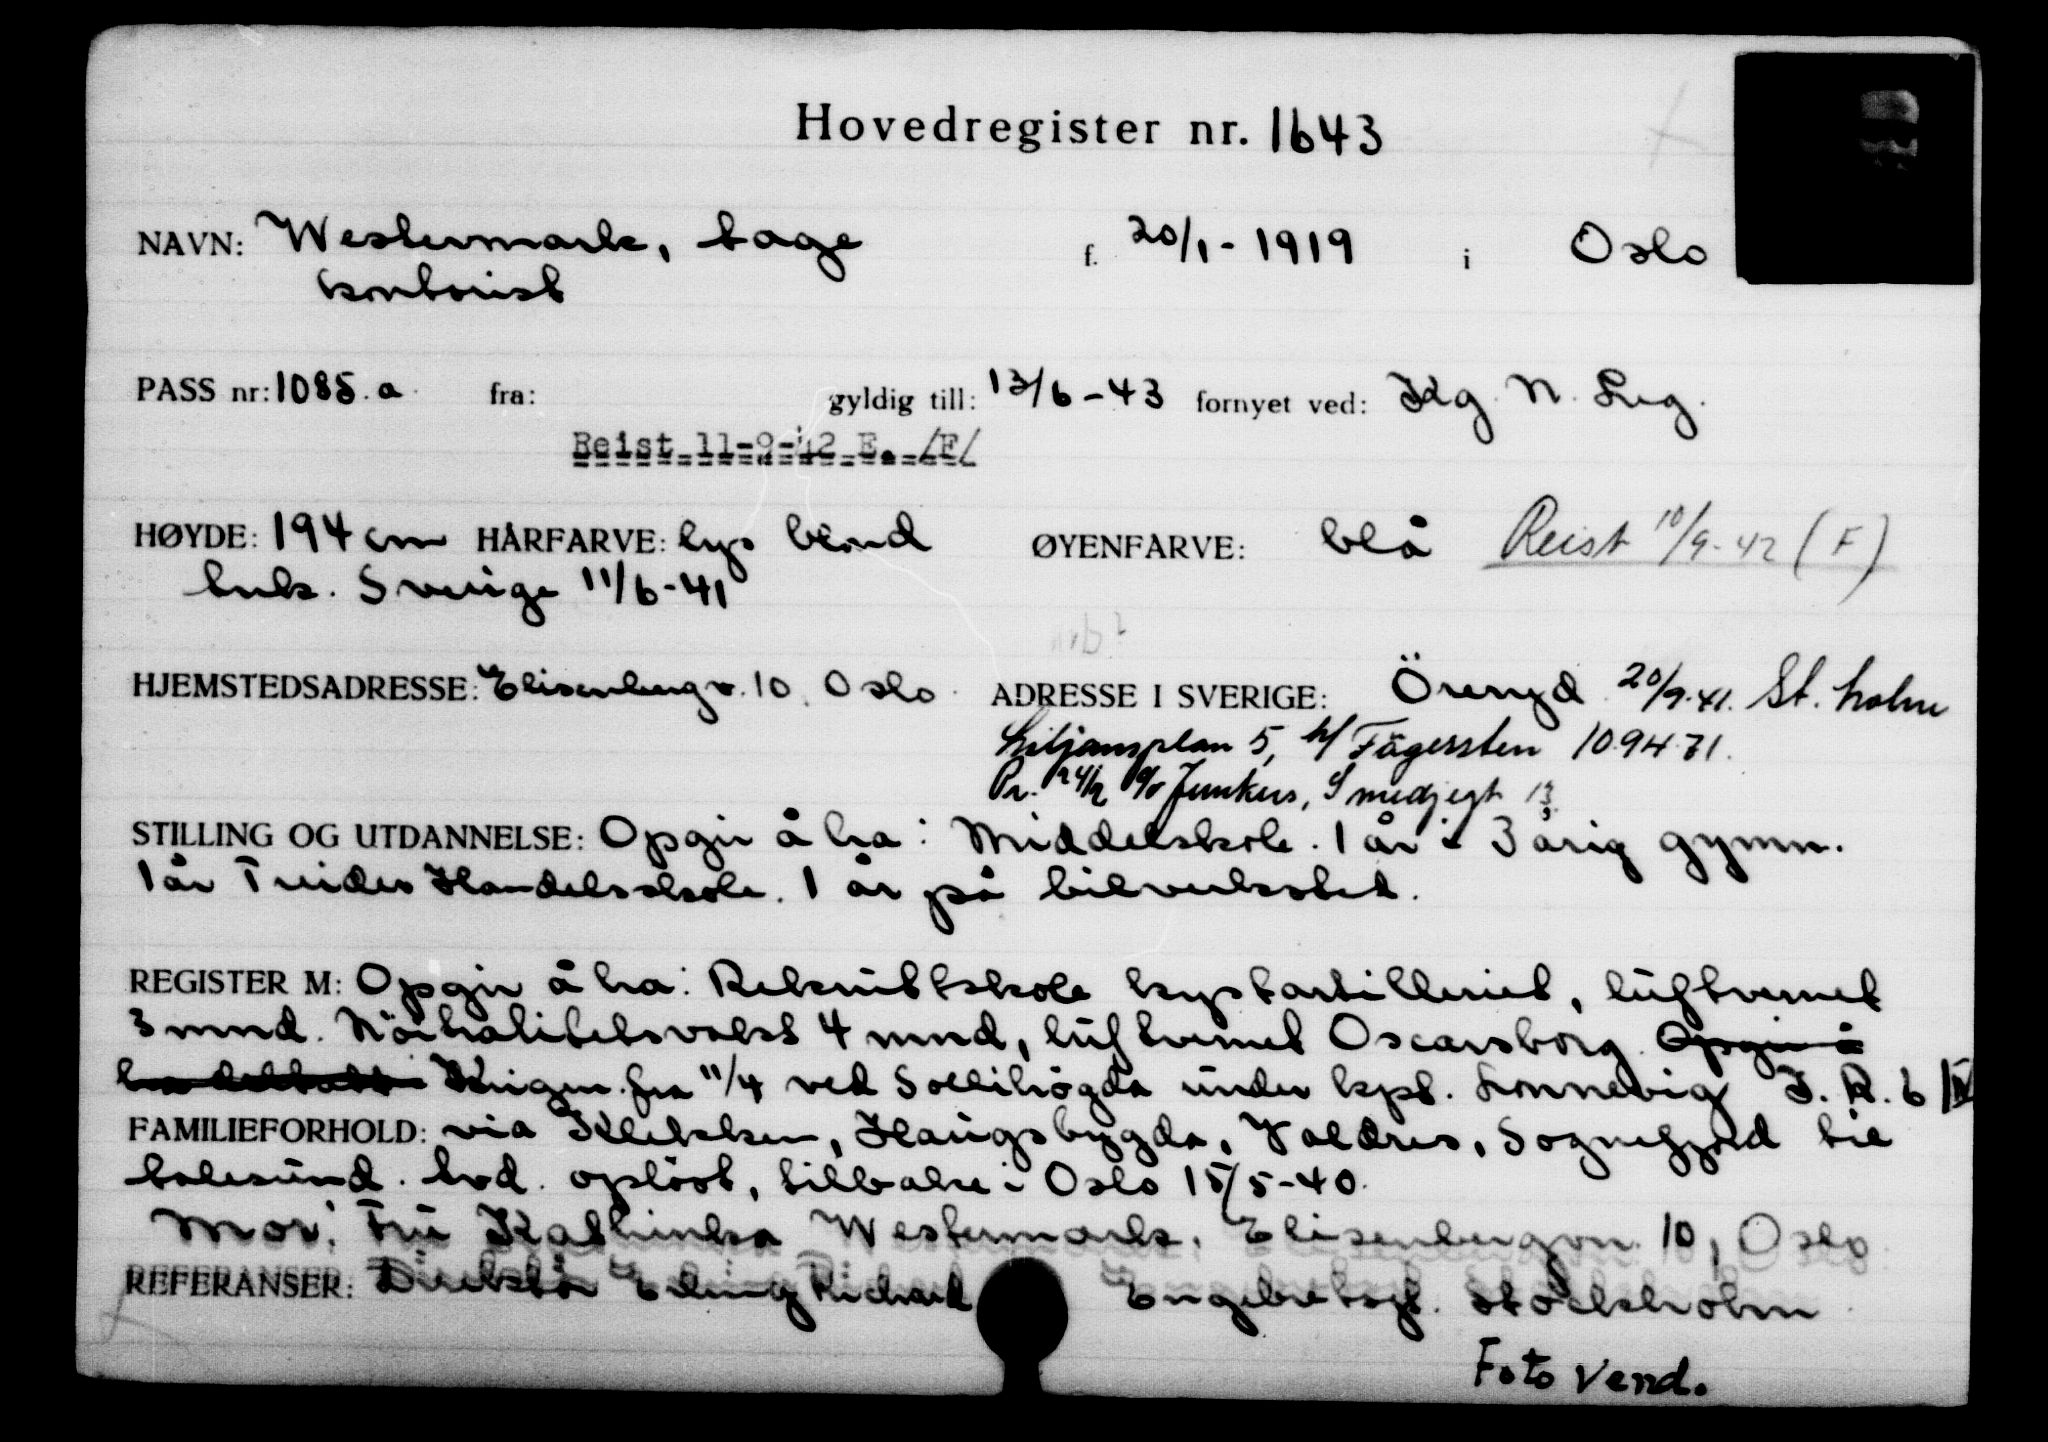 Hovedregister nr. 1643
NAVN: Westermark, Tage f. 20/1 - 1919 i Oslo
kontorist
PASS nr: 1085. a. fra: gyldig till: 13/6 - 43 fornyet ved: Kg. N. Leg.
Reist 11-9-42 E. /F/
HØYDE: 194 cm HÅRFARVE: lys blond ØYENFARVE: blå Reist 10/9-42 (F)
Ank. Sverige 11/6-41
HJEMSTEDSADRESSE: Elisenbergv. 10. Oslo. ADRESSE I SVERIGE: Öreryd 20/9.41. St. holm
Liljansplan 5, h/ Fägersten 10.94.71.
Pr. c/o Junkers, Smedjegt 13
STILLING OG UTDANNELSE: Opgir å ha: Middelskole. 1 år i 3 årig gymn.
1 år Treider Handelsskole. 1 år på bilverksted.
REGISTER M: Opgir å ha: Rekruttskole kystartilleriet, luftvernet
3 mnd. Nöitralitetsvakt 4 mnd, luftvernet Oscarsborg. Opgir å
ha deltatt i Krigen fra 11/4 ved Sollihøgda under kpt. Lonnevig I. R. 6 IV
FAMILIEFORHOLD: via Klekken, Haugsbygda, Valdres, Sognefjord til
Ålesund. Avd. oplöst, tilbake i Oslo 15/5-40.
Mor: Fru Kathinka Westermark, Elisenbergvn. 10, Oslo.
REFERANSER: Direktör Erling Richard Engelbrektsgt. Stockholm.
Foto Vend.